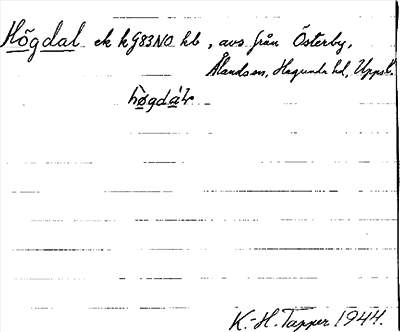 Högdal ek kG83NO hb, avs från Österby,
Ålands sn, Hagunda hd, Uppsl.
hø̀gdál
K.-H. Tapper 1944.